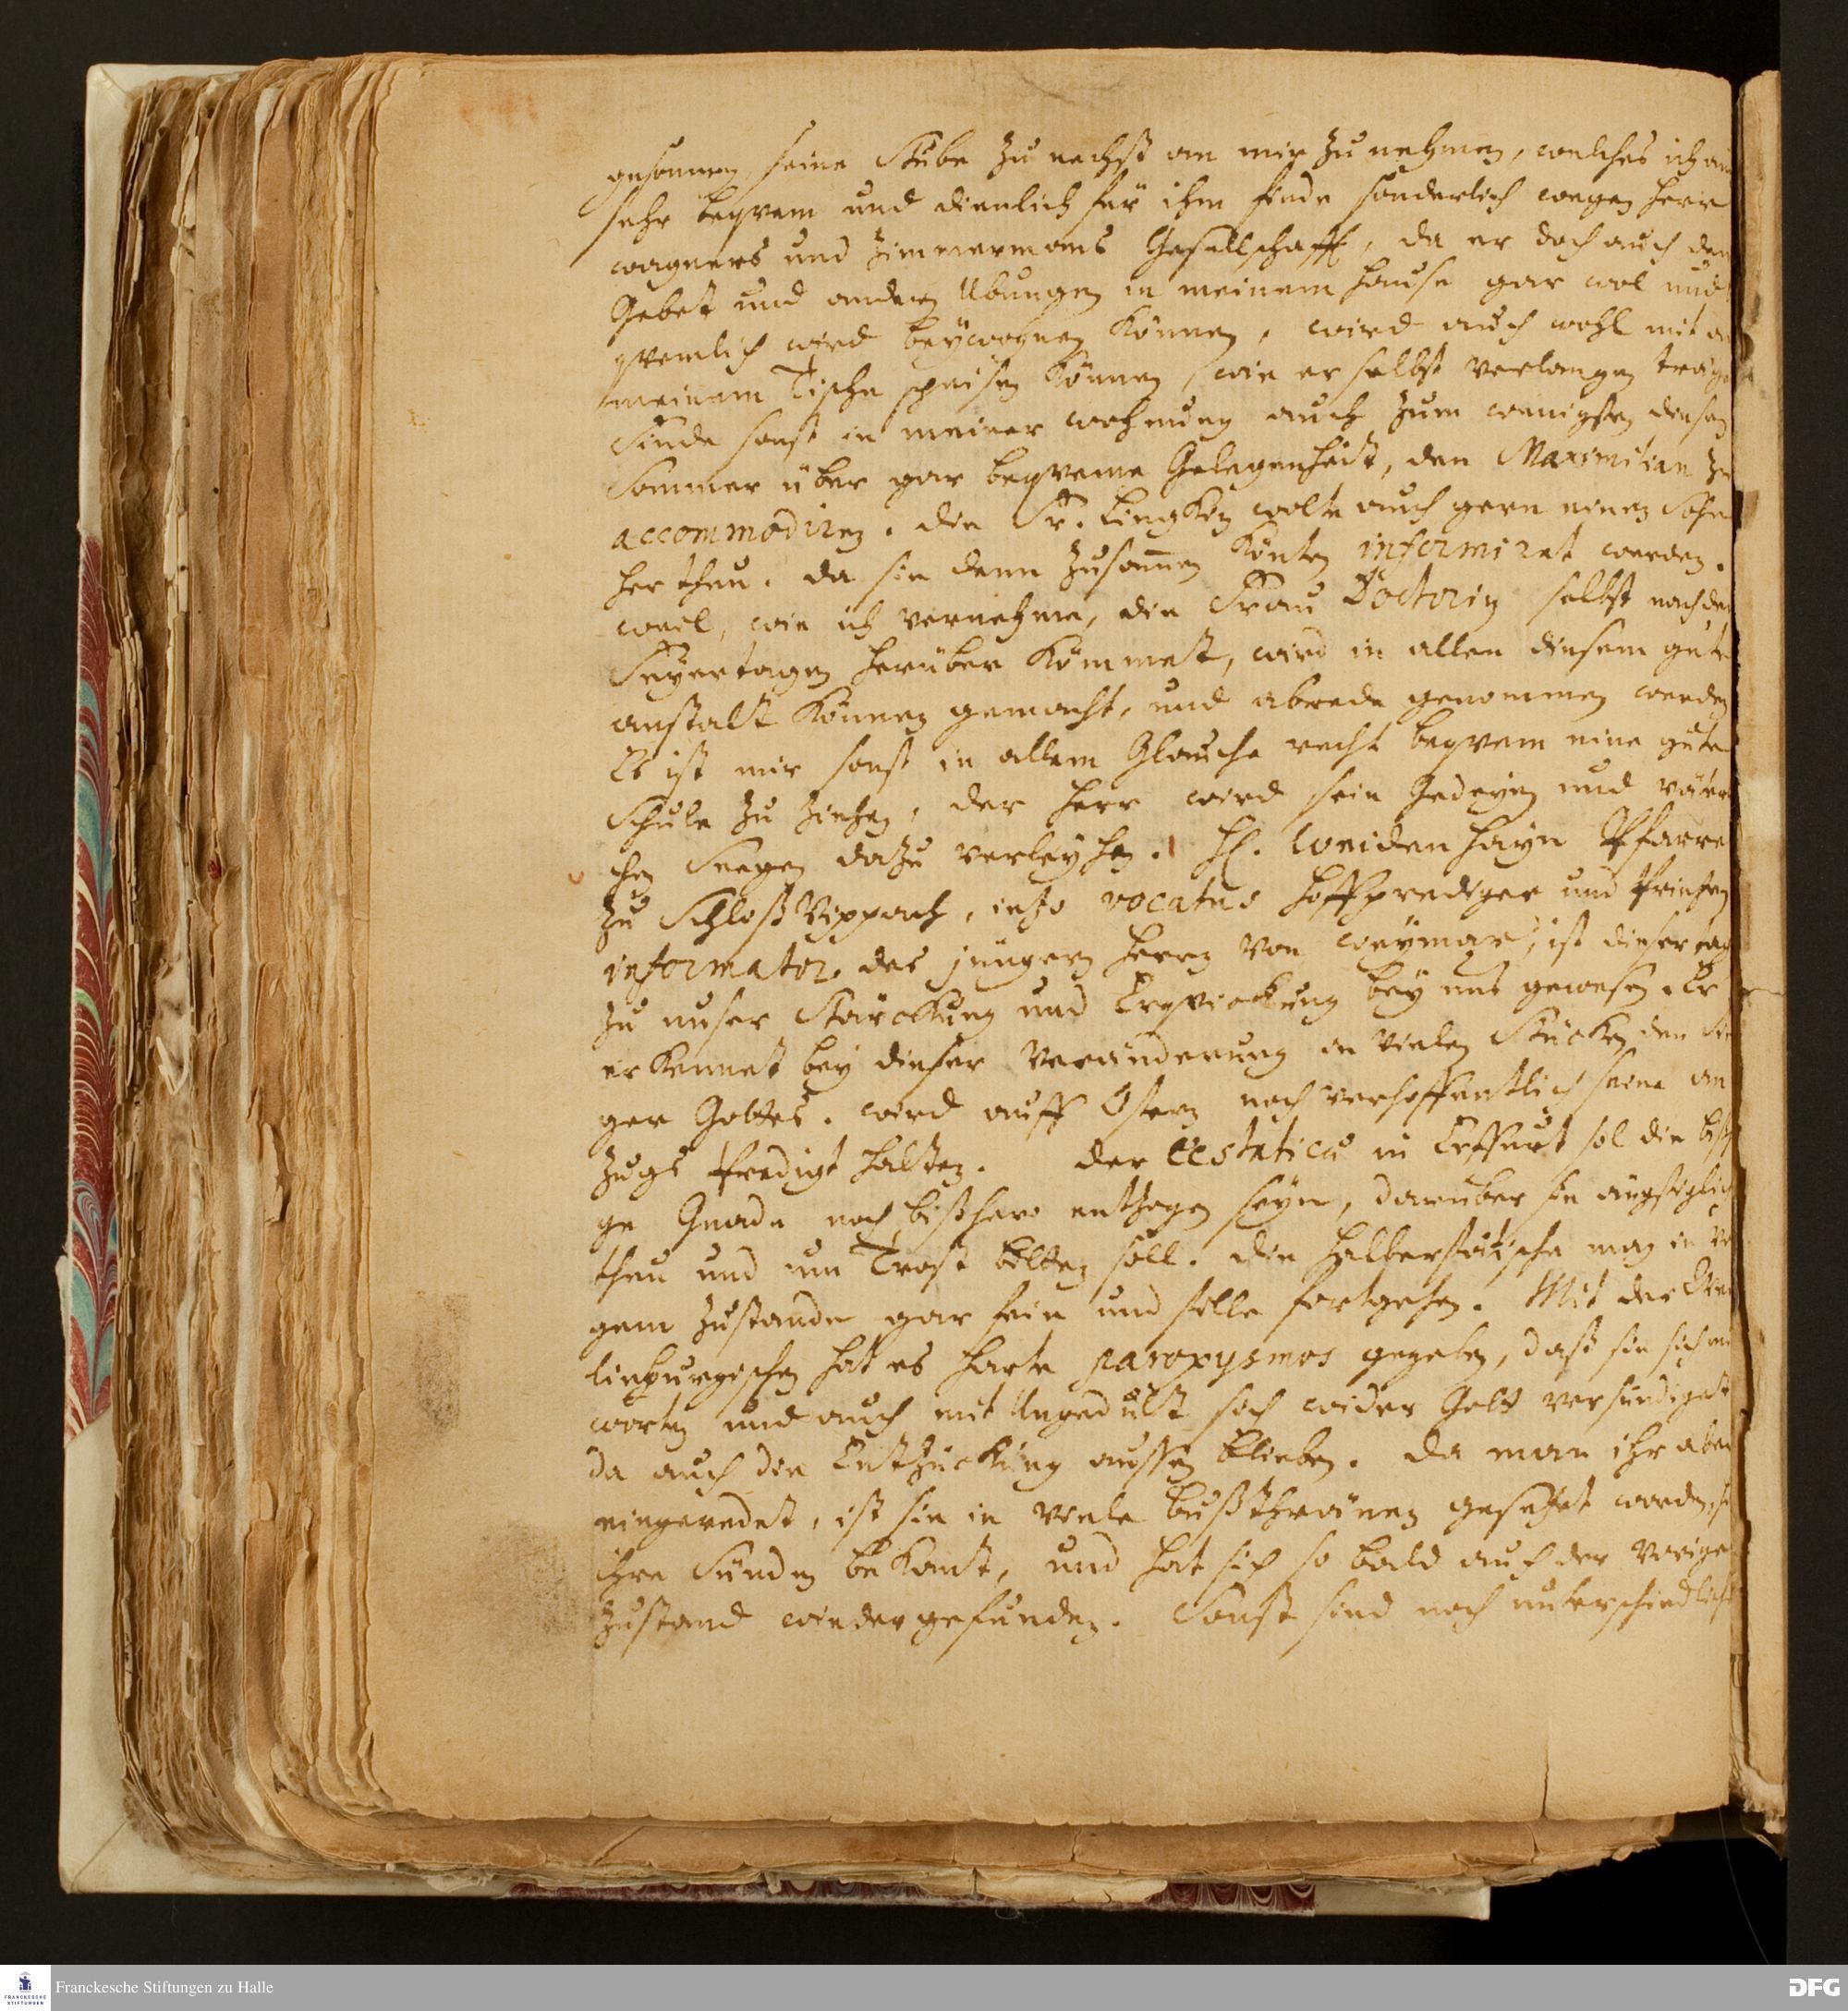 gesonnen, seine Stube zu nechst an mir zu nehmen, welches ich
sehr beqvem und dienlich für ihm finde sonderlich wegen Herr
wagners und Zimmermans Gesellschafft, da er doch auch dem
Gebet und andern Ubungen in meinem Hause gar wol und
qvemlich wird beywohnen können, wird auch wohl mit an
meinem Tische speisen können, wie er selbst verlangen träget
Finde sonst in meiner wohnung auch zum wenigsten diesen
Sommer über gar beqveme Gelegenheit, den Maximilian zu
accommodiren. die Fr. Lingken wolte auch gern einen Sohn
her thun. da sie denn zusammen könten informiret werden.
weil, wie ich vernehme, die Frau Doctorin selbst nach den
Feyertagen herüber kömmet, wird in allen diesem gute
anstalt können gemacht, und abrede genommen werden
Es ist mir sonst in allem Glauche recht beqvem eine gute
Schule zu ziehen, der Herr wird sein Gedeyen und väterl
chen Seegen dazu verleyhen. H. Weidenhayn Pfarre
zu Schloß Vippach, ietzo vocatus Hoffprediger und Printzen
informator des jüngern Herrn von Weymar, ist dieser tage
zu unser Stärckung und Erqvickung bey uns gewesen. Er
erkennet bey dieser Veränderung in vielen Stücken den
ger Gottes. wird auff Ostern noch verhoffentlich seine an
zugs Predigt halten. der Ecstatica in Erffurt sol die biß
ge Gnade noch bißhero entzogen seyn, darüber sie ängstiglich
thun und um Trost bitten soll. die Halberstätische mag in
gem Zustande gar fein und stille fortgehen. Mit der Qved
linburgischen hat es harte paroxysmos gegeben, daß sie sich mit
worten und auch mit Ungedult hoch wider Gott versündiget
da auch die Entzückung aussen blieben. da man ihr aber
eingeredet, ist sie in viele Bußthränen gesetzet worden,
ihre Sünden bekant, und hat sich so bald auch der vorige
Zustand wieder gefunden. Sonst sind noch unterschiedliche
Franckesche Stiftungen zu Halle
FRANCKESCHE
STIFTUNGEN
DFG